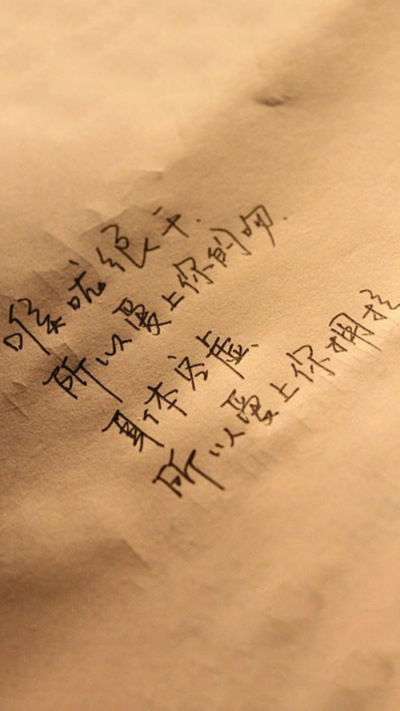 喉咙很干.
所以爱上你的吻.
身体空虚.
所以爱上你拥抱